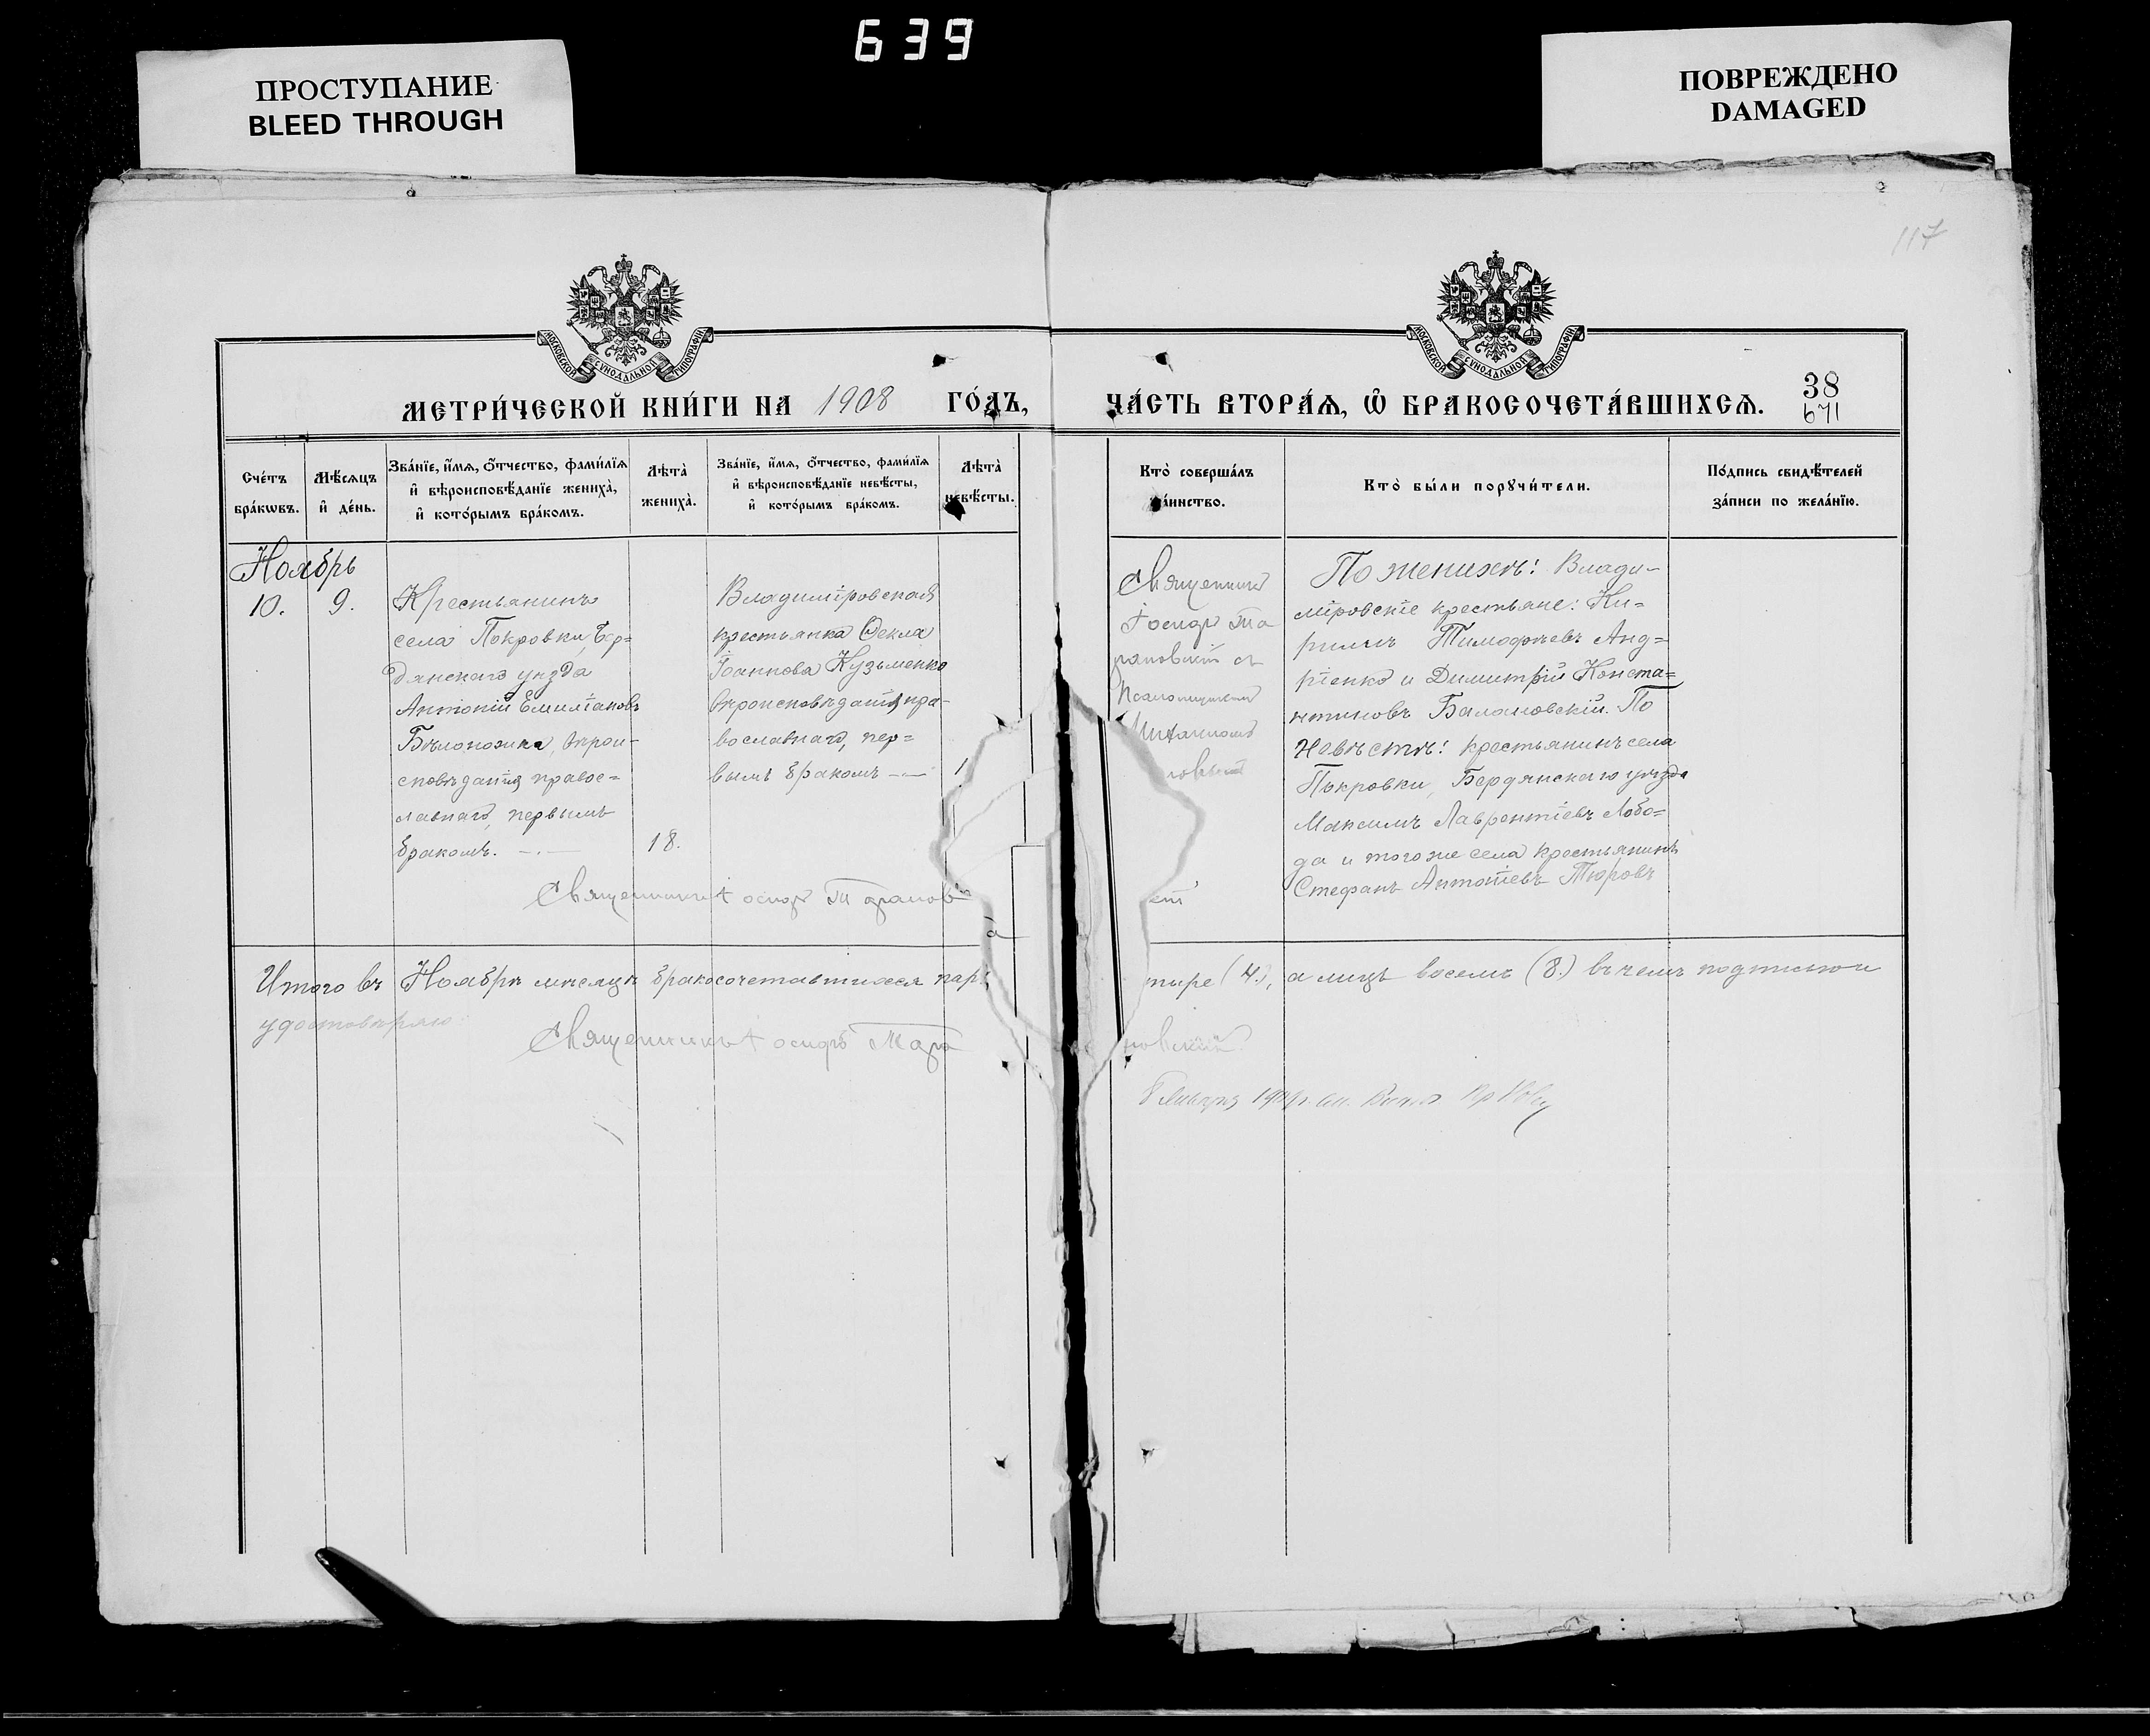 639
ПРОСТУПАНИЕ
BLEED THROUGH
ПОВРЕЖДЕНО
DAMAGED
117
МОСКОВСКОЙ СѴНОДАЛЬНОЙ ТИПОГРАФІИ
МОСКОВСКОЙ СѴНОДАЛЬНОЙ ТИПОГРАФІИ
МЕТРИ́ЧЕСКОЙ КНИ́ГИ НА 1908 ГО́ДЪ,
ЧА́СТЬ ВТОРА́Ѧ, Ѽ БРАКОСОЧЕТА́ВШИХСѦ.
38
671
Сче́тъ бра́кѡвъ.
Мѣ́сѧцъ и҆ де́нь.
Зва́нїе, и҆́мѧ, ѻ҆́тчество, фами́лїѧ и҆ вѣроисповѣ́данїе жениха̀, и҆ кото́рымъ бра́комъ.
Лѣта̀ жениха̀.
Зва́нїе, и҆́мѧ, ѻ҆́тчество, фами́лїѧ и҆ вѣроисповѣ́данїе невѣ́сты, и҆ кото́рымъ бра́комъ.
Лѣта̀ невѣ́сты.
Кто̀ соверша́лъ та́инство.
Кто̀ бы́ли порꙋчи́тели.
По́дпись свидѣ́телей за́писи по жела́нїю.
Ноябрь
10.
9.
Крестьянинъ
села Покровки, Бер=
дянскаго уѣзда
Антоній Емиліановъ
Бѣлоножка, вѣрои-
сповѣданія правос=
лавнаго, первымъ
бракомъ.
18.
Владиміровская
крестьянка Ѳекла
Іоаннова Кузьменко
вѣроисповѣданія пра-
вославнаго, пер=
вымъ бракомъ
1
Священникъ
Іосифъ Та
рановскій съ
По женихѣ: Влади-
міровскіе крестьяне: Ки=
риллъ Тимофѣевъ Анд=
ріенко и Димитрій Конста=
нтиновъ Балановскій. По
Невѣстѣ: крестьянинъ села
Покровки, Бердянскаго уѣзда
Максимъ Лаврентіевъ Лобо=
да и того же села крестьянинъ
Стефанъ Антоніевъ Тюровъ
Священникъ Іосифъ Таранов
Итого въ Ноябрѣ мѣсяцѣ бракосочетавшихся паръ
тыре (4.), а лицъ восемь (8.) въ чемъ подписью и
удостовѣряю.
Священникъ Іосифъ Тара
новскій